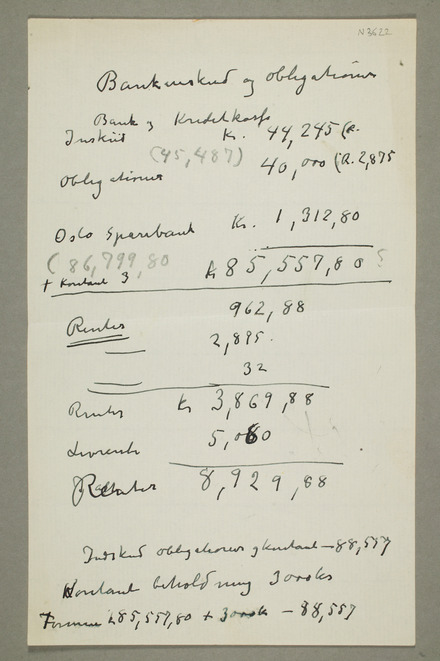 N3622
Bankinskud og obligationer
Bank og Kreditkasse
Inskud Kr. 44,245 (a.
(45,487)
Obligationer 40,000 (a. 2,875
Oslo Sparebank Kr. 1,312,80
(86,799,80
+ Kontant 3 kr 85,557,80 5
Renter 962,88
2,895.
32
Renter kr 3,869,88
Livrente 5,060
Renter 8,929,88
Indskud obligationer og kontant – 88,557
Kontant beholdning 3000kr
Formue kr 85,557,80 + 3000kr – 88,557